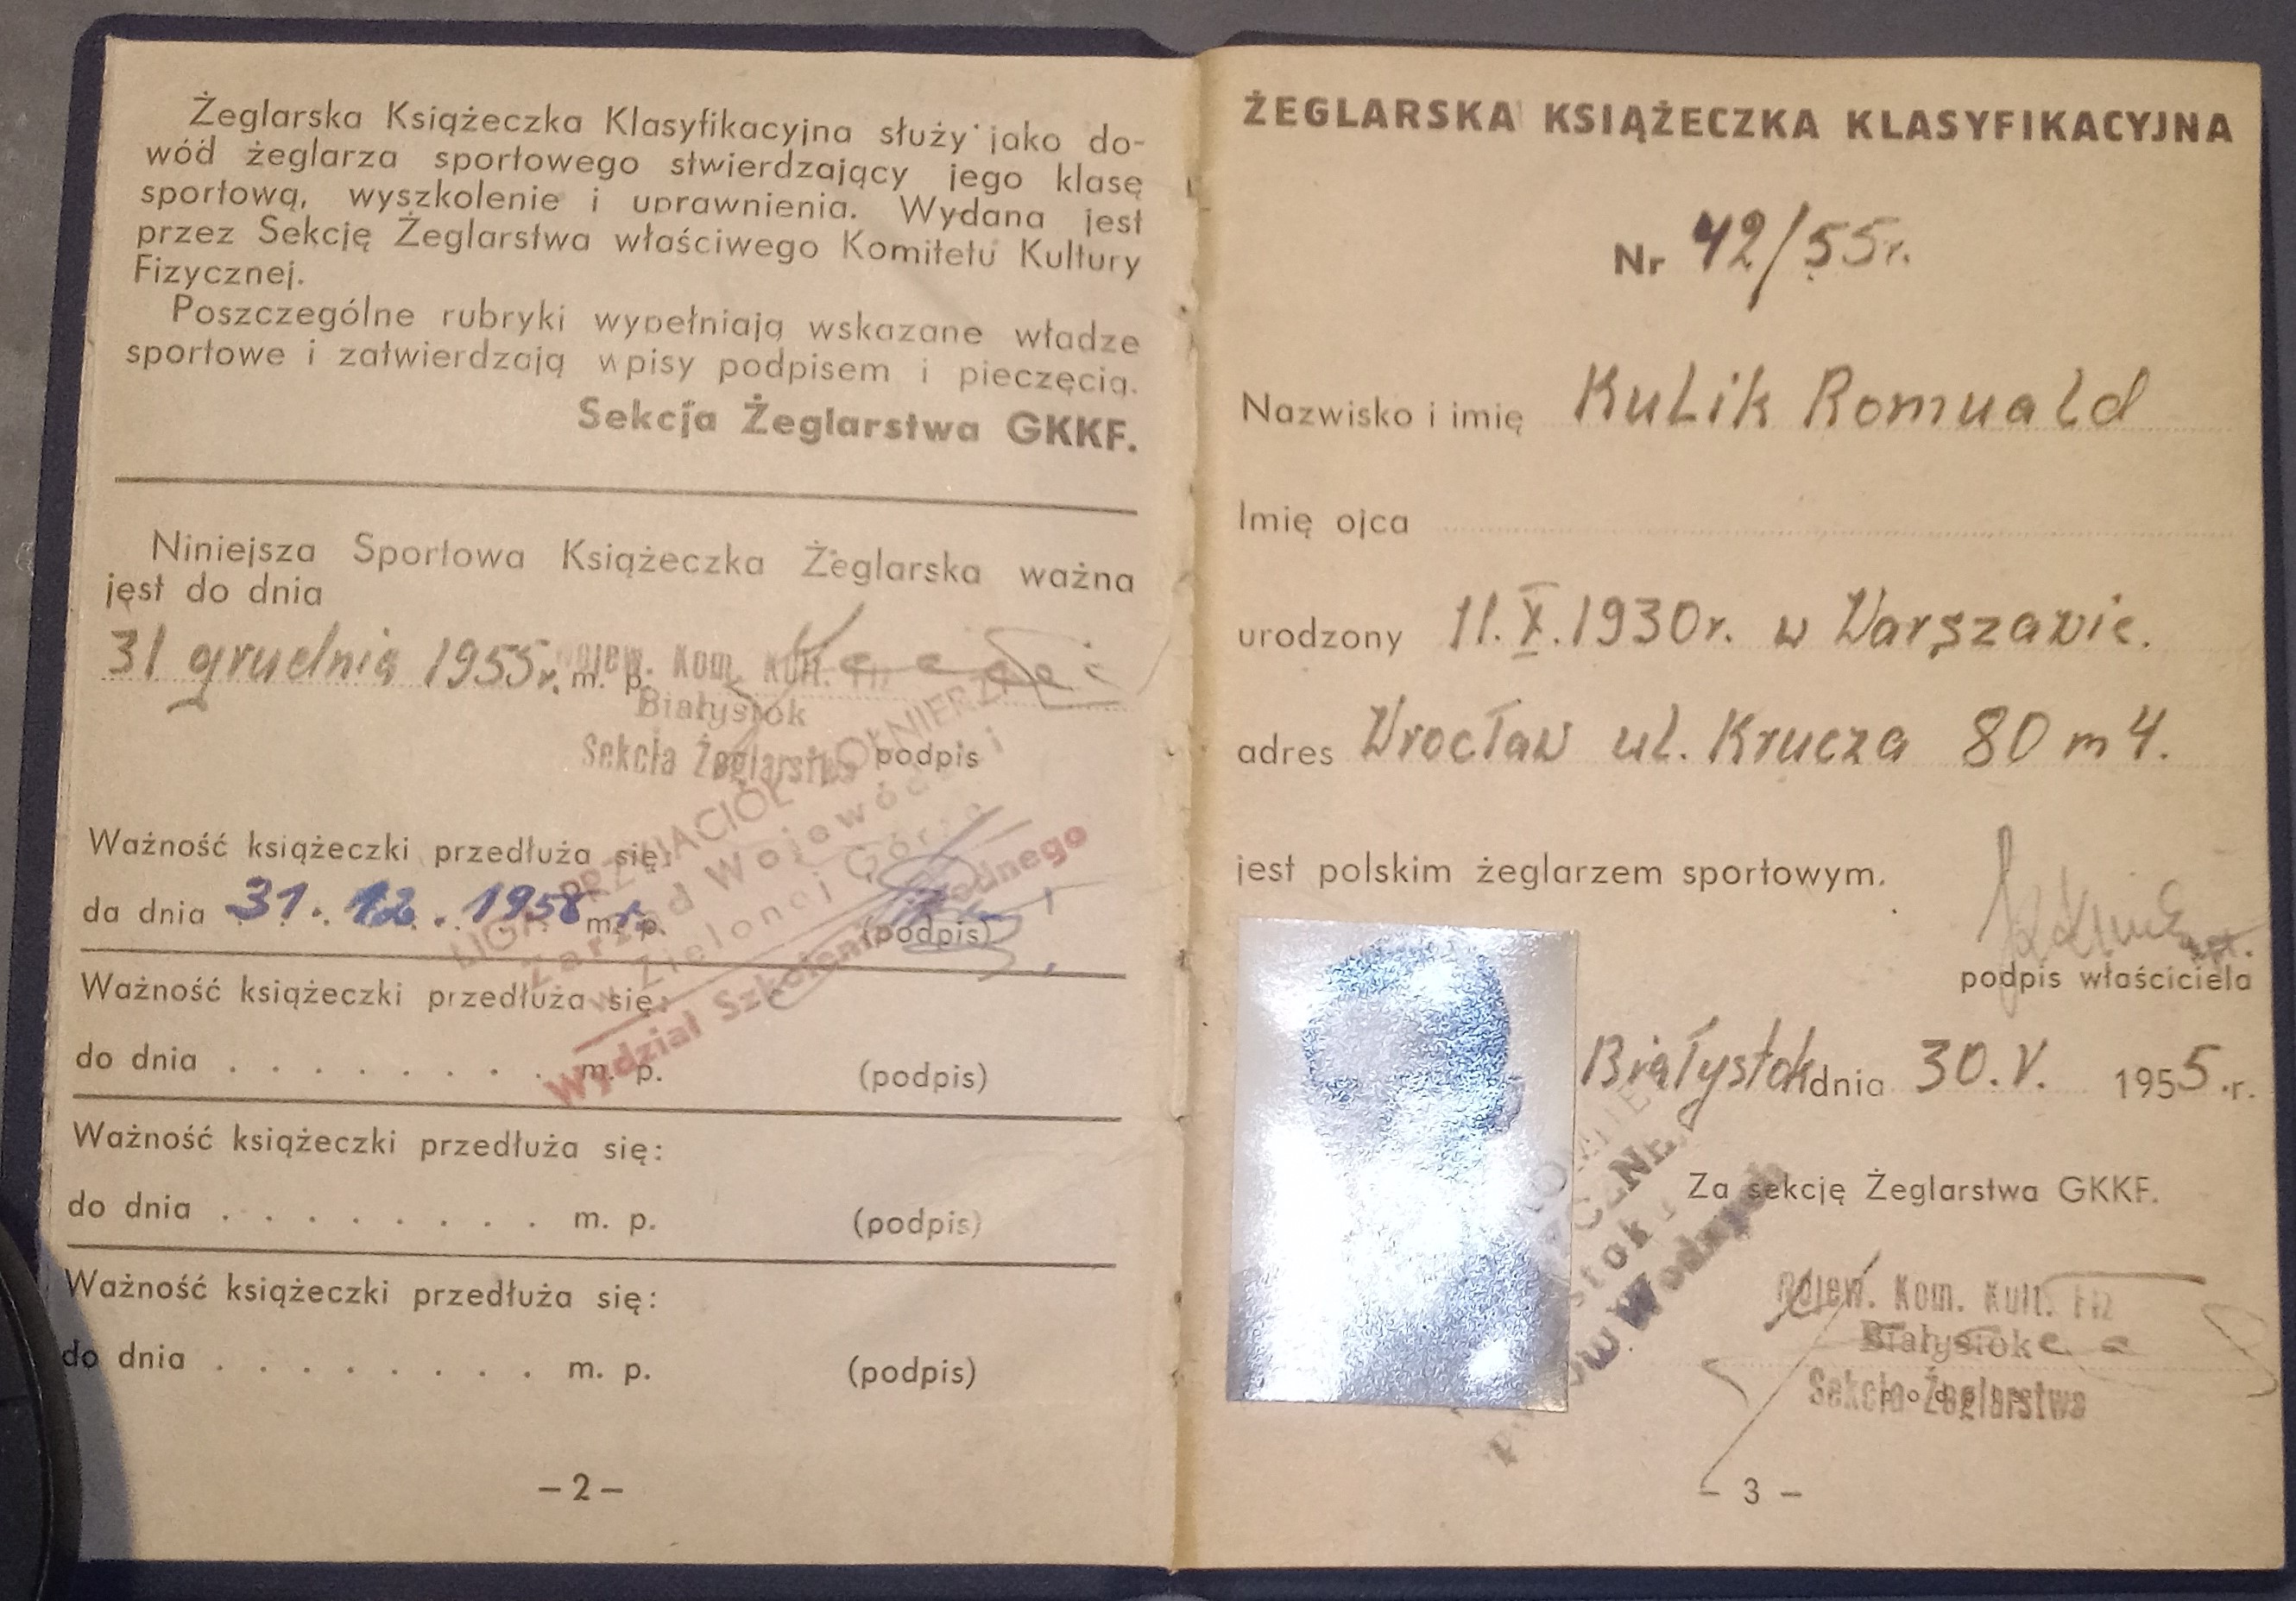 Żeglarska Książeczka Klasyfikacyjna służy jako do-
wód żeglarza sportowego stwierdzający jego klasę
sportową, wyszkolenie i uprawnienia. Wydana jest
przez Sekcję Żeglarstwa właściwego Komitetu Kultury
Fizycznej.
Poszczególne rubryki wypełniają wskazane władze
sportowe i zatwierdzają wpisy podpisem i pieczęcią.
Sekcja Żeglarstwa GKKF.
Niniejsza Sportowa Książeczka Żeglarska ważna
jest do dnia
31 grudnia 1955r. m. p.
Wojew. Kom. Kult. Fiz
Białystok
Sekcja Żeglarstwa
podpis
LIGA PRZYJACIÓŁ ŻOŁNIERZA
Zarząd Wojewódzki
w Zielonej Górze
Wydział Szkolenia Wodnego
Ważność książeczki przedłuża się:
da dnia 31. 12. 1958 r. m. p. (podpis)
Ważność książeczki przedłuża się:
do dnia . . . . . . . . m. p. (podpis)
Ważność książeczki przedłuża się:
do dnia . . . . . . . . m. p. (podpis)
Ważność książeczki przedłuża się:
do dnia . . . . . . . . m. p. (podpis)
– 2 –
ŻEGLARSKA KSIĄŻECZKA KLASYFIKACYJNA
Nr 42/55r.
Nazwisko i imię Kulik Romuald
Imię ojca
urodzony 11.X.1930r. w Warszawie.
adres Wrocław ul. Krucza 80 m 4.
jest polskim żeglarzem sportowym.
podpis właściciela
Białystok dnia 30.V. 1955.r.
Za sekcję Żeglarstwa GKKF.
Wojew. Kom. Kult. Fiz
Białystok
Sekcja Żeglarstwa
Wodnych
– 3 –